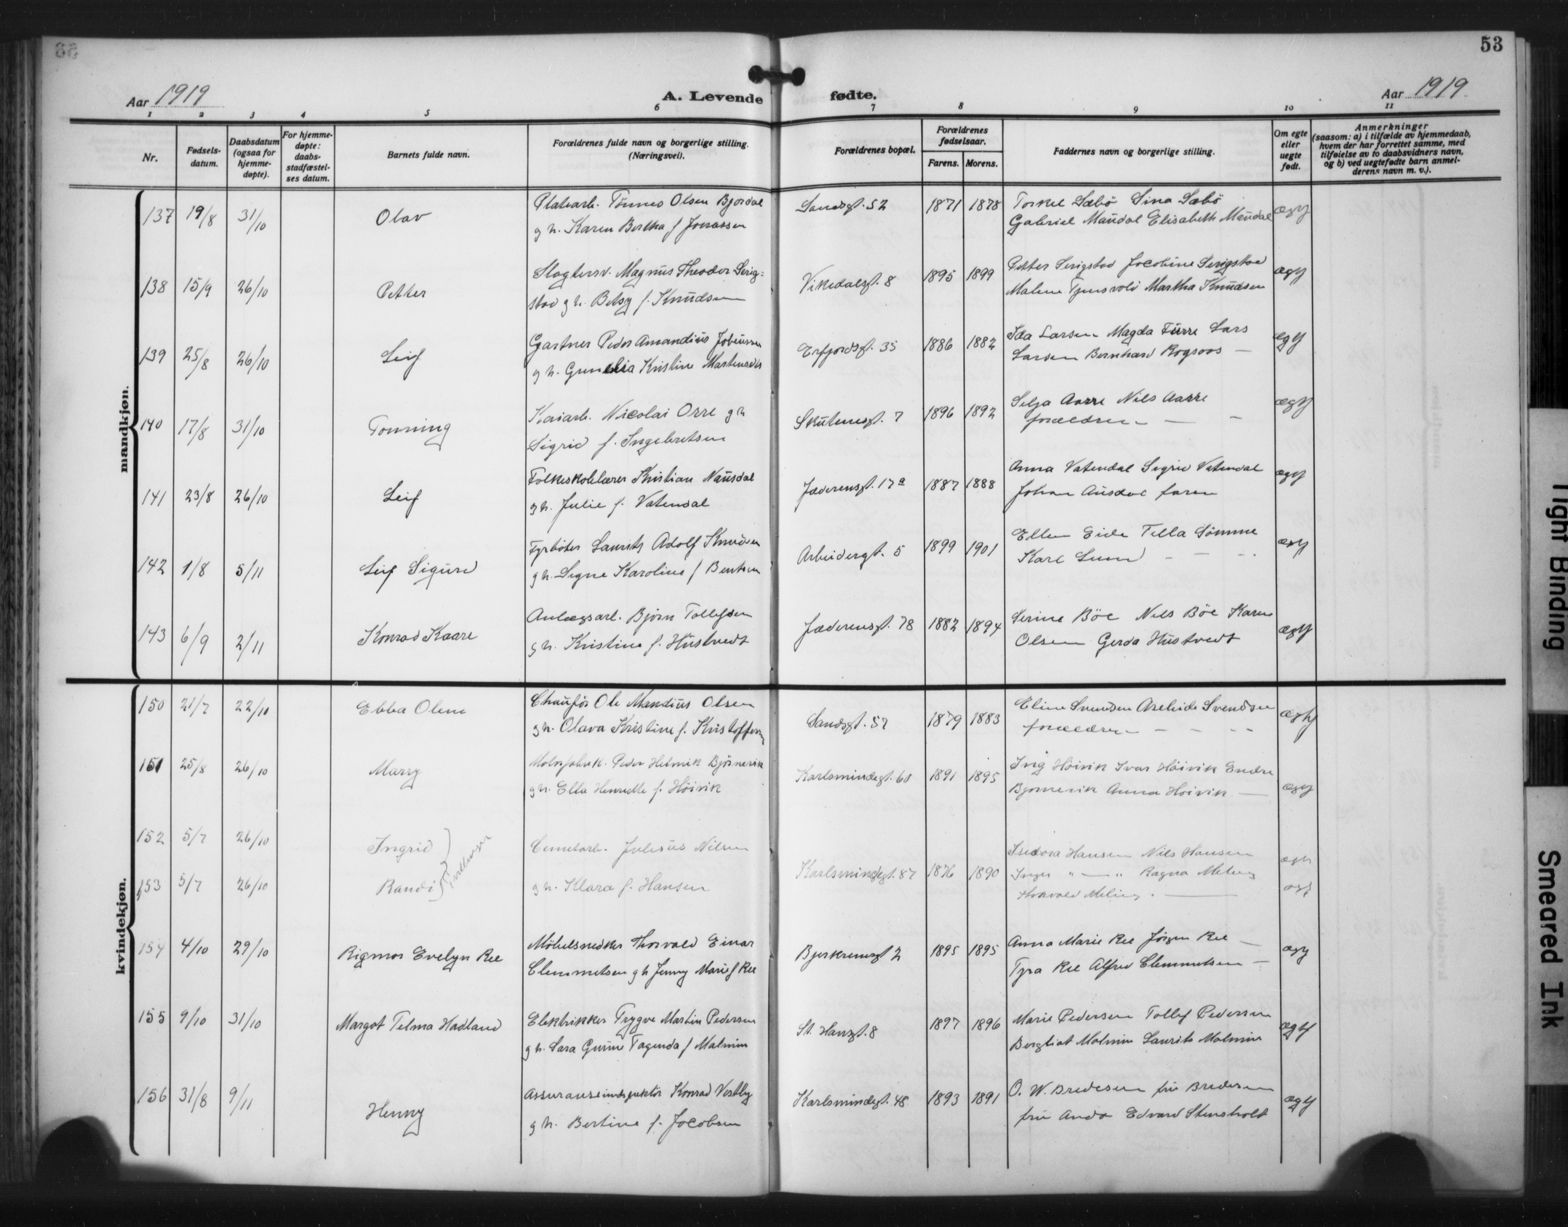 53
Aar 1919
A. Levende fødte.
Aar 1919.
1 2 3 4 5 6 7 8 9 10 11
Nr.
Fødsels-
datum.
Daabsdatum
(ogsaa for
hjemme-
døpte).
For hjemme-
døpte:
daabs-
stadfæstel-
ses datum.
Barnets fulde navn.
Forældrenes fulde navn og borgerlige stilling.
(Næringsvei).
Forældrenes bopæl.
Forældrenes
fødselsaar.
Farens. Morens.
Faddernes navn og borgerlige stilling.
Om egte
eller
uegte
født.
Anmerkninger
(saasom: a) i tilfælde av hjemmedaab,
hvem der har forrettet samme, med
tilføielse av to daabsvidners navn,
og b) ved uegtefødte barn anmel-
derens navn m. v.).
mandkjøn.
137 19/8 31/10 Olav
Platearb. Tønnes Olsen Bjordal
g h. Karen Bertha f Jonassen
Sandsgt. 52 1871 1878
Torkel Sæbø Sina Sæbø
Gabriel Maudal Elisabeth Maudal
138 15/9 26/10 Petter
Slagtersv. Magnus Theodor Serig-
stad g h. Betsy f. Knudsen
Vikedalsgt. 8 1895 1899
Petter Serigstad Jacobine Serigstad
Malene Tjensvold Martha Knudsen
139 25/8 26/10 Leif
Gartner Peder Amandius
g h. Kristine
Erfjordsgt. 35 1886 1882
Ida Larsen Magda Furre Lars
Larsen Bernhard
140 17/8 31/10 Tonning
Kaiarb. Nicolai Orre g h
Sigrid f. Ingebretsen
7 1896 1892
Selja Aarre Nils Aarre
forældrene — —
141 23/8 26/10 Leif
Folkeskolelærer Kristian Nausdal
g h. Julie f. Vatendal
Jæderensgt. 17a 1887 1888
Anna Vatendal Sigrid Vatendal
Johan faren
142 1/8 5/11 Leif Sigurd
Fyrbøter Laurits Adolf Knudsen
g h. Signe Karoline f Bentsen
Arbeidergt. 5 1899 1901
Ellen Eide Tilla Sømme
Karl Lund
143 6/9 2/11 Konrad Kaare
Anlægsarb. Bjørn Tollefsen
g h. Kristine f. Hustvedt
Jæderensgt. 78 1882 1894
Serine Bøe Nils Bøe Karen
Olsen Gerda Hustvedt
kvindekjøn.
150 21/7 22/10 Ebba Olene
Chauffør Ole Mandius Olsen
g h. Olava Kristine f. Kristoffersen
Sandsgt. 57 1879 1883
Eline Svendsen Adeleide Svendsen
forældrene — —
151 25/8 26/10 Marry
Peder Helmik Bjørnevik
g h. Ella Henriette f. Høivik
Karlsmindegt. 61 1891 1895
Ing Høivik Ivar Høivik Endre
Bjørnevik Anna Høivik —
152 5/7 26/10 Ingrid
153 5/7 26/10 Randi
Tvillinger
Cementarb. Julius Nilsen
g h. Klara f. Hansen
Karlsmindegt. 87 1876 1890
Isidora Hansen Nils Hansen
Inger " — " Ragna Meling
Meling. —
154 4/10 29/10 Rigmor Evelyn Ree
Møbelsnedker Thorvald Einar
Clemmetsen g h Jenny Marie f Ree
Bjerkreimsgt 2 1895 1895
Anna Marie Ree Jørgen Ree —
Tyra Ree Alfred Clemmetsen —
155 9/10 31/10 Margot Telma Hadland
Elektrikker Trygve Martin Pedersen
g h. Sara Gurine Tagenda f Malmin
St. Hansgt. 8 1897 1896
Marie Pedersen Tollef Pedersen
Bergliot Malmin Laurits Malmin
156 31/8 9/11 Henny
Assuranseinspektør Konrad Vostby
g h. Bertine f. Jacobsen
Karlsmindegt. 48 1893 1891
O. W. Bredesen fru Bredesen
fru Anda Edvard Stensholdt
Tight Binding
Smeared Ink